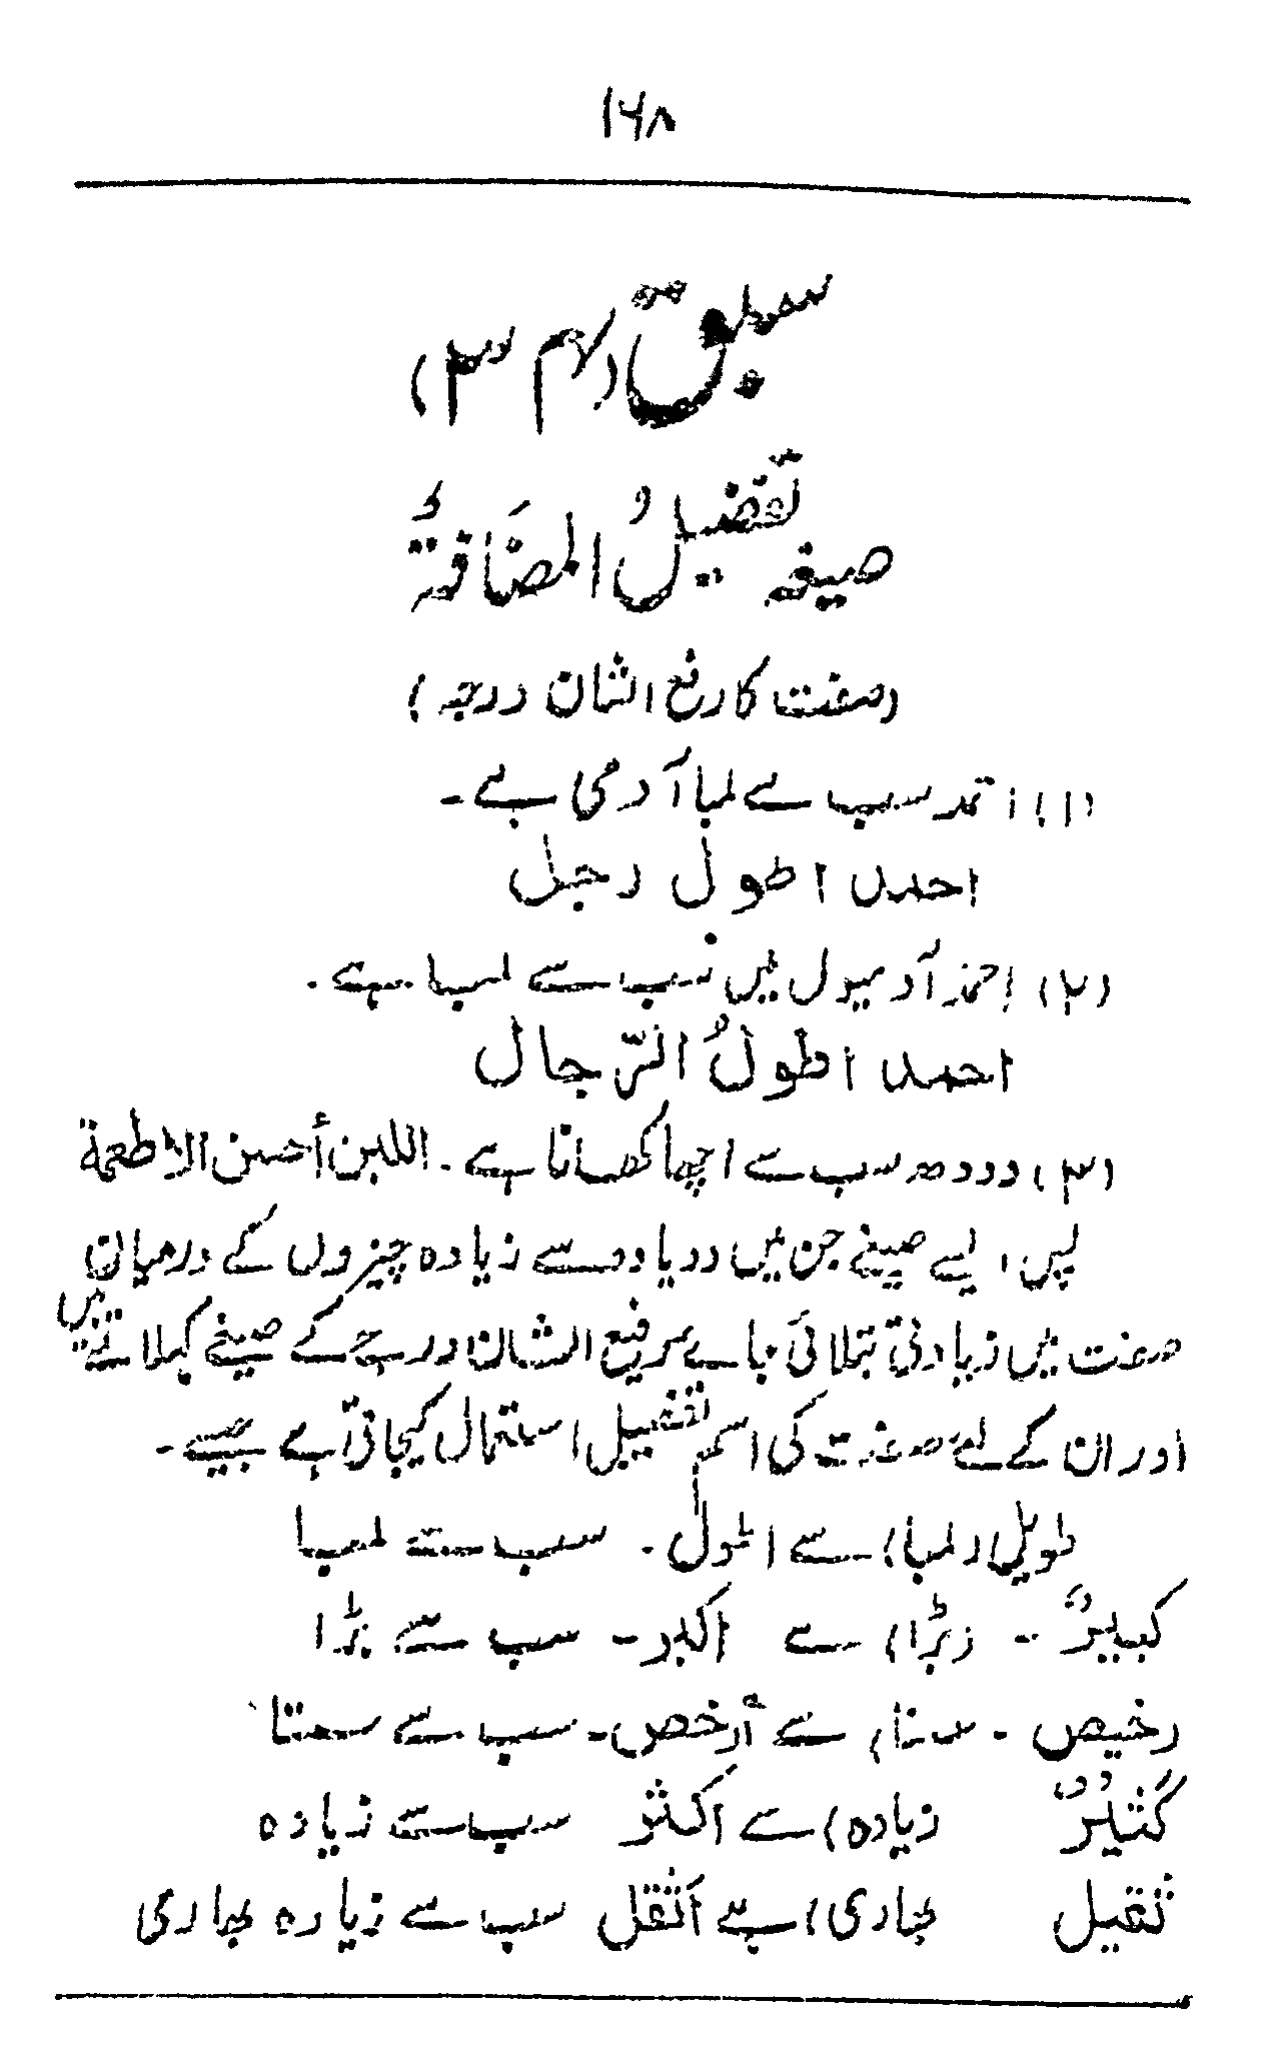 ۱۶۸
سبق (۳۴)
صیغہ تفضیلُ المضَافةُ
(صفت کا رفیع الشان درجہ)
(۱) احمد سب سے لمبا آدمی ہے۔
احمد اطول رجل
(۲) احمد آدمیوں میں سب سے لمبا ہے۔
احمد اطولُ الرّجال
(۳) دودھ سب سے اچھا کھانا ہے۔ اللبن أحسن الاطعمة
پس ایسے صیغے جن میں دو یا دو سے زیادہ چیزوں کے درمیان
صفت میں زیادتی بتلائی جاے رفیع الشان درجے کے صیغے کہلاتے ہیں
اور ان کے لئے صفت کی اسم تفضیل استعمال کیجاتی ہے جیسے۔
طویل (لمبا) سے اطول۔ سب سے لمبا
کبیرٌ - (بڑا) سے اکبر - سب سے بڑا
رخیص - سستا) سے أرخص - سب سے سستا
کَثیرٌ زیادہ) سے اکثر سب سے زیادہ
ثقیل بھاری) سے اَثقل سب سے زیادہ بھاری